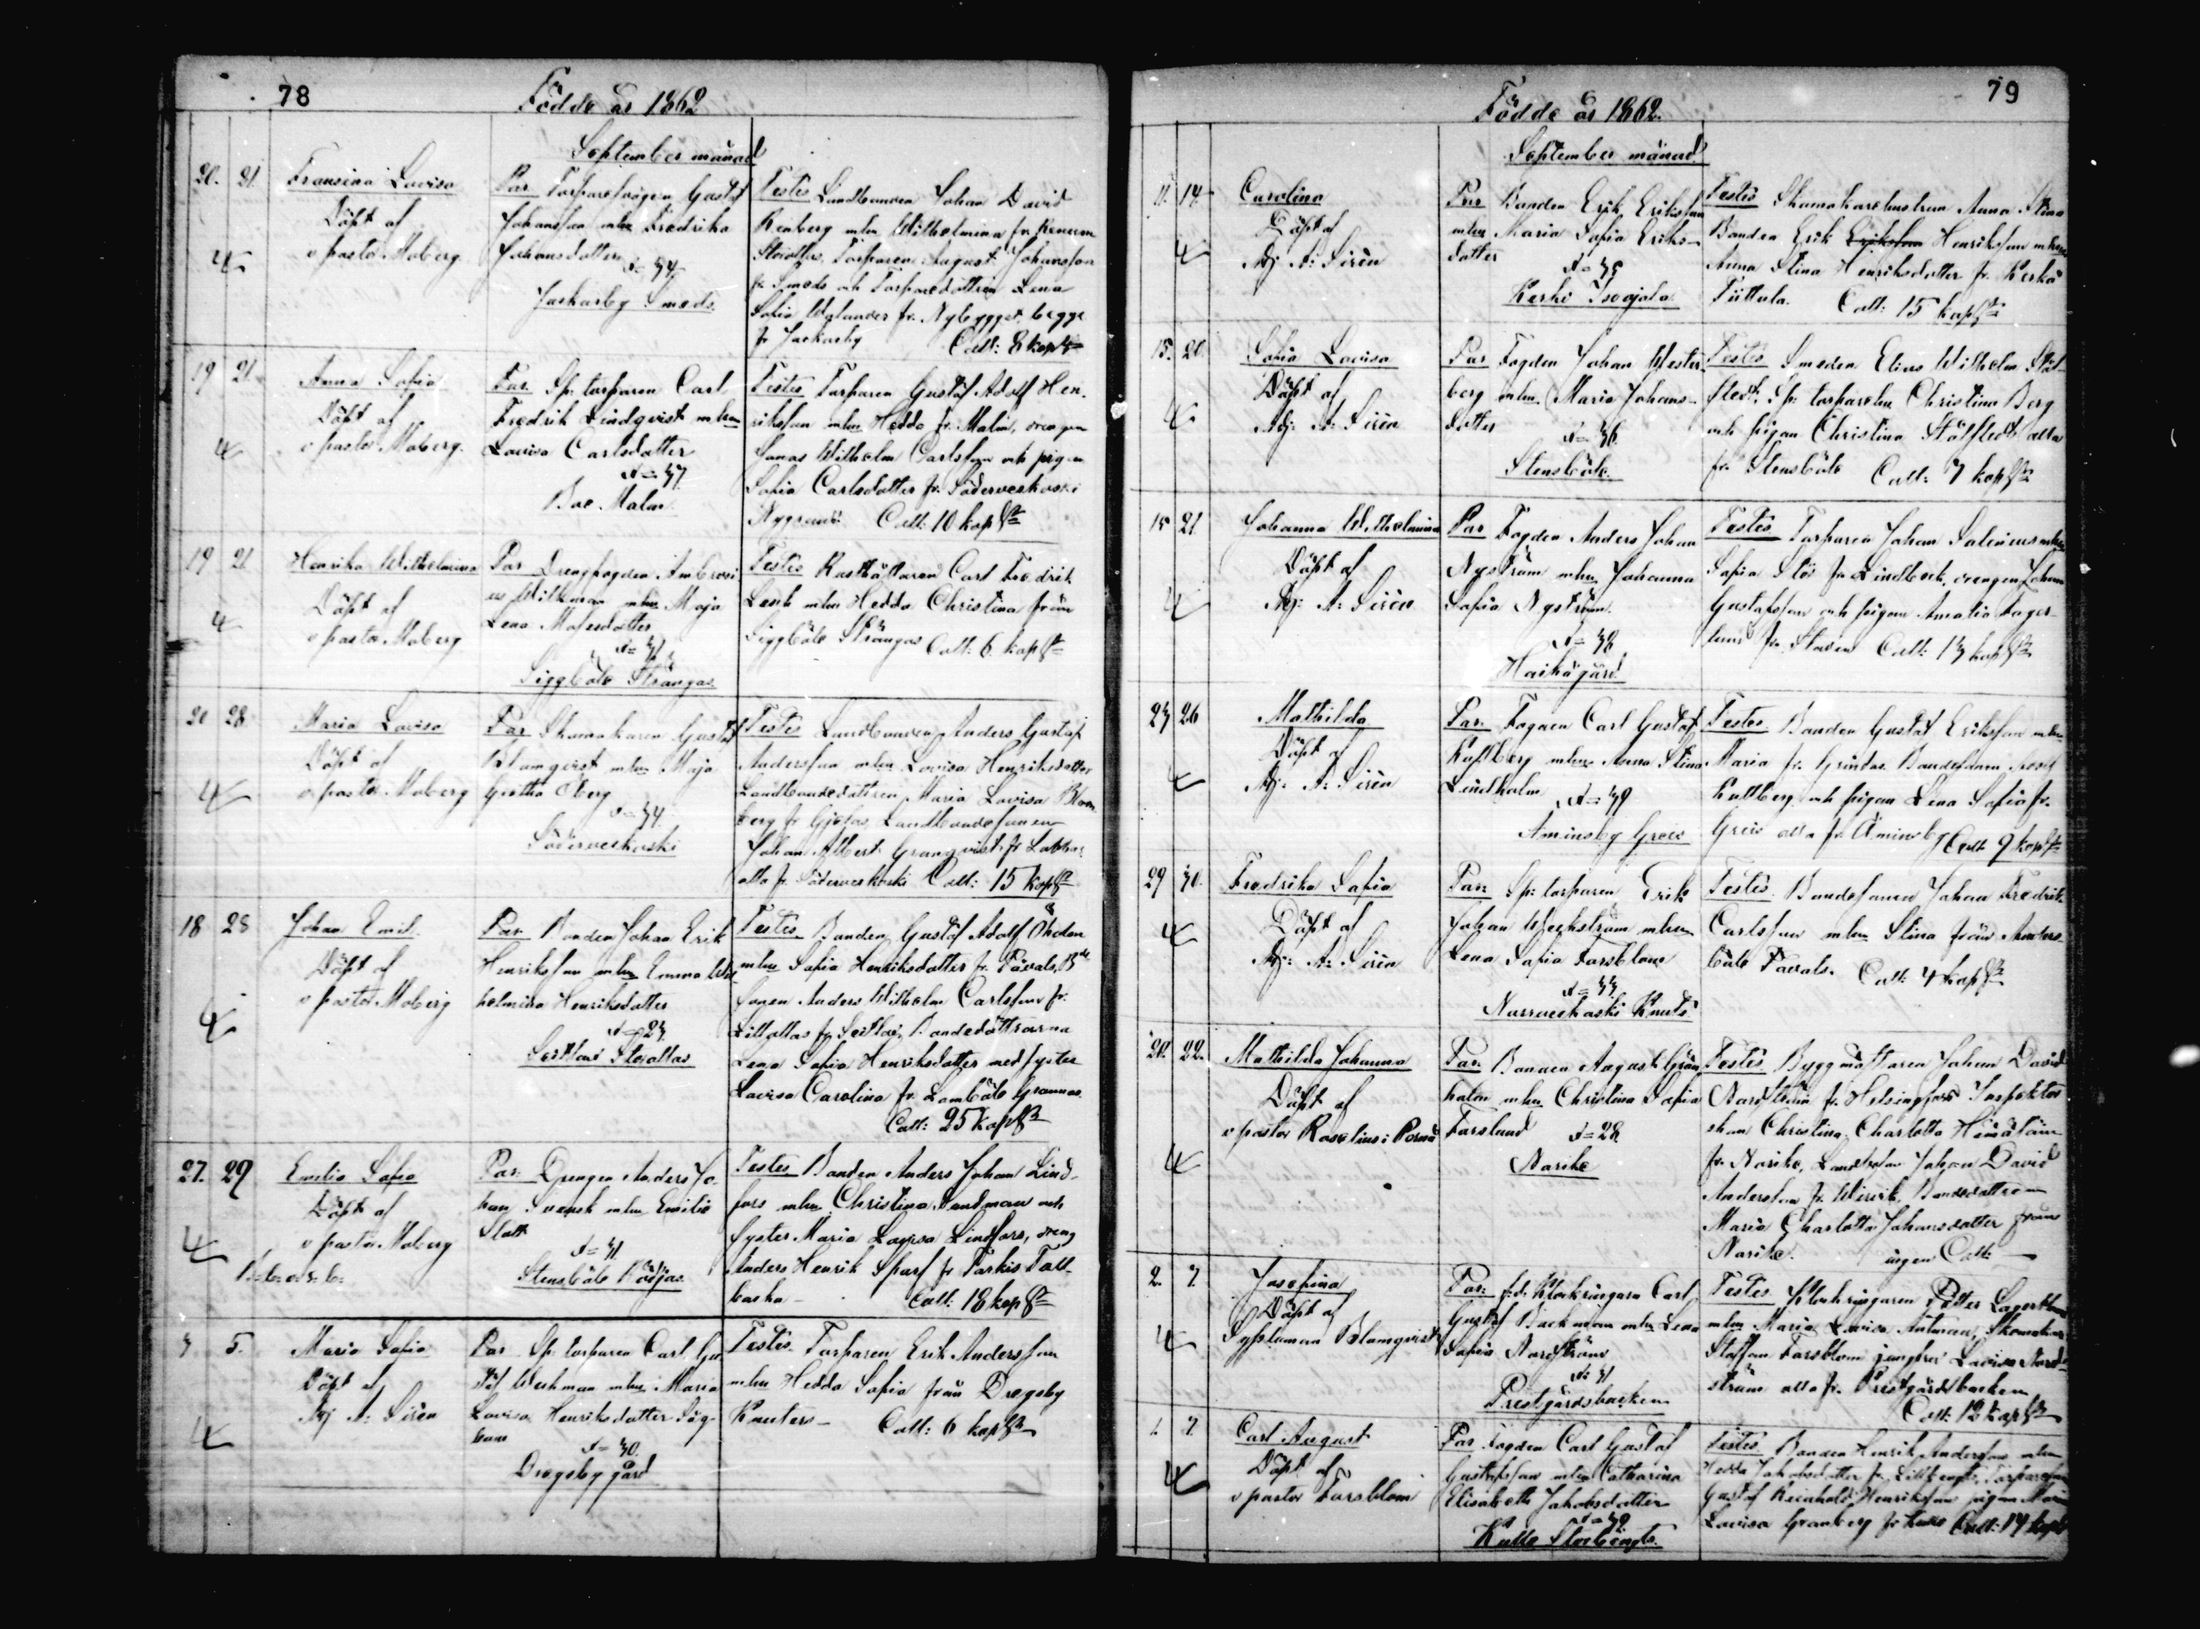 78
Födde år 1862
September månad
20. 21. Fransina Lovisa
Döpt af
v pastor Moberg
Par Torparedrägen Gustaf
Johansson mhu Fredrika
Johansdotter
Jackarby Smeds.
Testes Landbonden Johan David
Renberg mhu Wilhelmina fr.
Torparen August Johansson
fr Smeds och Torparedottren Lena
Sofia fr. Nybygget, begge
fr Jackarby Coll: 8 kop
19 21 Anna Sofia
Döpt af
v pastor Moberg.
Par Sp. torparen Carl
Fredrik Lindqvist mhu
Lovisa Carlsdotter
Boe Malm
Testes Torparen Gustaf Adolf Hen-
riksson mhu Hedda fr. Malm, drengen
Jonas Wilhelm Carlsson och pigan
Sofia Carlsdotter fr. Söderveckoski
Coll: 10 kop
19 21 Henrika Wilhelmina
Döpt af
v pastor Moberg
Par Drengfogden Ambrosi
us Willman mhu Maja
Lena
Siggböle Strångas
Testes Rusthållaren Carl Fredrik
Lenk mhu Hedda Christina från
Siggböle Strångas Coll: 6 kop
20 28 Maria Lovisa
Döpt af
v pastor Moberg
Par Skomakaren Gustaf
Blomqvist mhu Maja
Gretha Öberg
Söderveckoski
Testes Landbonden Anders Gustaf
Andersson mhu Lovisa Henriksdotter
Landbondedottren Maria Lovisa
berg fr Landbondesonen
Johan Albert Granqvist fr
alla fr Söderveckoski Coll: 15 kop
18 28 Johan Emil
Döpt af
v pastor Moberg
Par Bonden Johan Erik
Henriksson mhu Emma Wil
helmina Henriksdotter
Seitlaks Storattas
Testes Bonden Gustaf Adolf
mhu Sofia Henriksdotter fr. Påvals, Bde
sonen Anders Wilhelm Carlsson fr.
Lillattas fr Bondedöttrarna
Lena Sofia Henriksdotter med syster
Lovisa Carolina fr. Lomböle Grannas
Coll: 25 kop
27. 29 Emilia Sofia
Döpt af
v pastor Moberg
Par Drengen Anders Jo
han Svensk mhu Emilie
Slott
Stensböle Rödjas
Testes Bonden Anders Johan Lind-
fors mhu Christina Sandman och
syster Maria Lovisa Lindfors, dreng
Anders Henrik Sparf fr Tarkis Tall-
backa Coll: 18 kop
3 5. Maria Sofia
Döpt af
Adj A: Sirén
Par Sp. torparen Carl Gu
staf Weckman mhu Maria
Lovisa Henriksdotter Sög-
bom
Drägsby gård
Testes Torparen Erik Andersson
mhu Hedda Sofia från Drägsby
Knuters Coll: 6 kop
79
Födde år 1862.
September månad
11. 14. Carolina
Döpt af
Adj A: Sirén
Par Bonden Erik Eriksson
mhu Maria Sofia Eriks-
dotter
Kerko Isoajola
Testes Skomakarehustrun Anna Stina
Bonden Erik Eriksson Henriksson mhu
Anna Stina Henriksdotter fr. Kerko
Tüttula. Coll: 15 kop
15. 20. Sofia Lovisa
Döpt af
Adj: A: Sirén
Par Fogden Johan Wester
berg mhu Maria Johans-
dotter
Stensböle.
Testes Smeden Elias Wilhelm Stål-
stedt, Sp: torparehu Christina Berg
och pigan Christina Stålstedt alla
fr. Stensböle Coll: 7 kop
15 21 Johanna Wilhelmina
Döpt af
Adj: A: Sirén
Par Fogden Anders Johan
Nyström mhu Johanna
Sofia Nyström
Haikå gård
Testes Torparen Johan Salenius mhu
Sofia Slöö fr. Lindbeck, drengen Johan
Gustafsson och pigan Amalia Fager-
lund fr. Coll: 13 kop
23 26 Mathilda
Döpt af
Adj: A: Sirén
Par: Fogden Carl Gustaf
Kullberg mhu Anna Stina
Lindholm
Aminsby Greis
Testes Bonden Gustaf Eriksson mhu
Maria fr. Gröndas Bondesonen
Kullberg och pigan Lena Sofia fr.
Greis alla fr. Åminsby Coll 9 kop
29 30. Fredrika Sofia
Döpt af
Adj: A: Sirén
Par: Sp: torparen Erik
Johan Weckström mhu
Lena Sofia Forsblom
Norrveckoski Knuts
Testes Bondesonen Johan Fredrik
Carlsson mhu Stina från Anders-
böle Påvals. Coll: 4 kop
20. 22. Mathilda Johanna
Döpt af
v pastor Roselius i Pernå
Par: Bonden August Grön
holm mhu Christina Sofia
Forslund
Norike
Testes Byggmästaren Johan David
Nordström fr. Helsingfors Inspektor
skan Christina Charlotta Himäläin
fr. Norike, Johan David
Andersson fr. Wirvik, Bondedottren
Maria Charlotta Johansdotter från
Norike. ingen Coll:
2. 7 Josefina
Döpt af
Syssloman Blomqvist
Par: fd. Klockringaren Carl
Gustaf Backman mhu Lena
Sofia Nordström
Prestgårdsbacken
Testes Klockringaren Petter Lagerblom
mhu Maria Lovisa Antman, Skomakar
Staffan Forsblom jungfrun Lovisa Nord-
ström alla fr. Prestgårdsbacken
Coll: 12 kop
1. 7 Carl August
Döpt af
v pastor Forsblom
Par Fogden Carl Gustaf
Gustafsson mhu Catharina
Elisabeth Jakobsdotter
Kullo Storbengts.
Testes Bonden Henrik Andersson mhu
Hedda Jakobsdotter fr. Lillbengts, torparesonen
Gustaf Reinhold Henriksson pigan Maria
Lovisa Granberg fr Kullo Coll: 14 kop